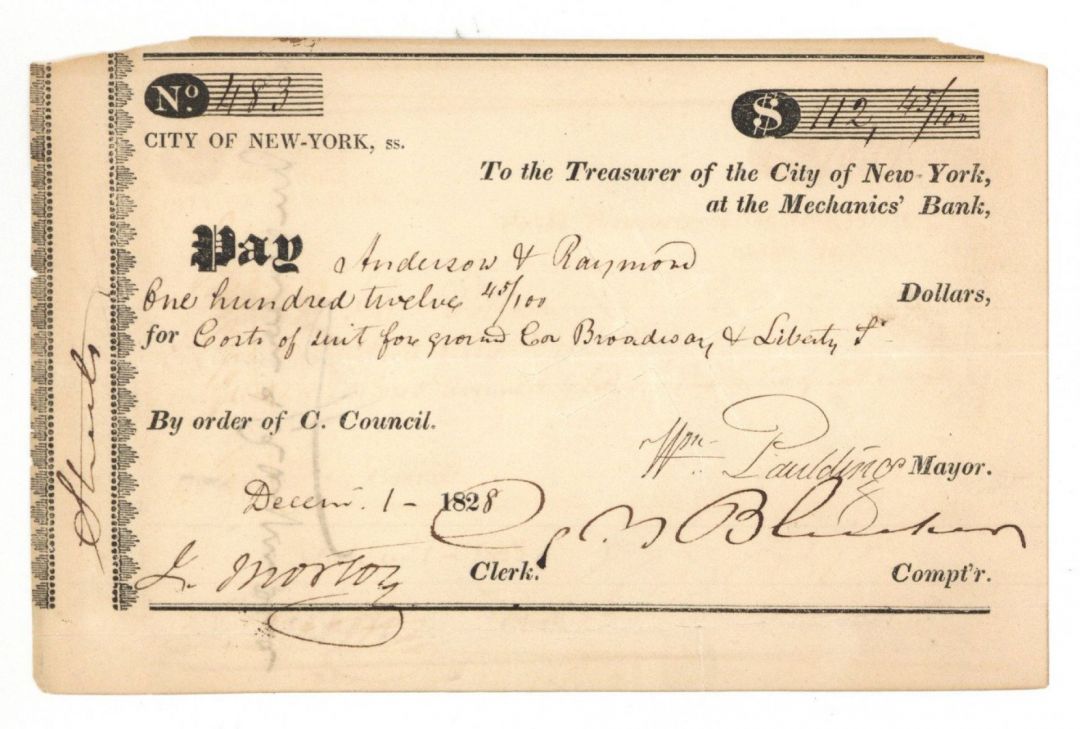 No. 483
$ 112, 45/100
CITY OF NEW-YORK, ss.
To the Treasurer of the City of New-York,
at the Mechanics' Bank,
Pay Anderson & Raymond
One hundred twelve 45/100 Dollars,
for Costs of suit for ground Cor Broadway & Liberty St
By order of C. Council.
Wm. Paulding Mayor.
Decem. 1 - 1828
Bleecker
J. Morton Clerk. Compt'r.
Streets